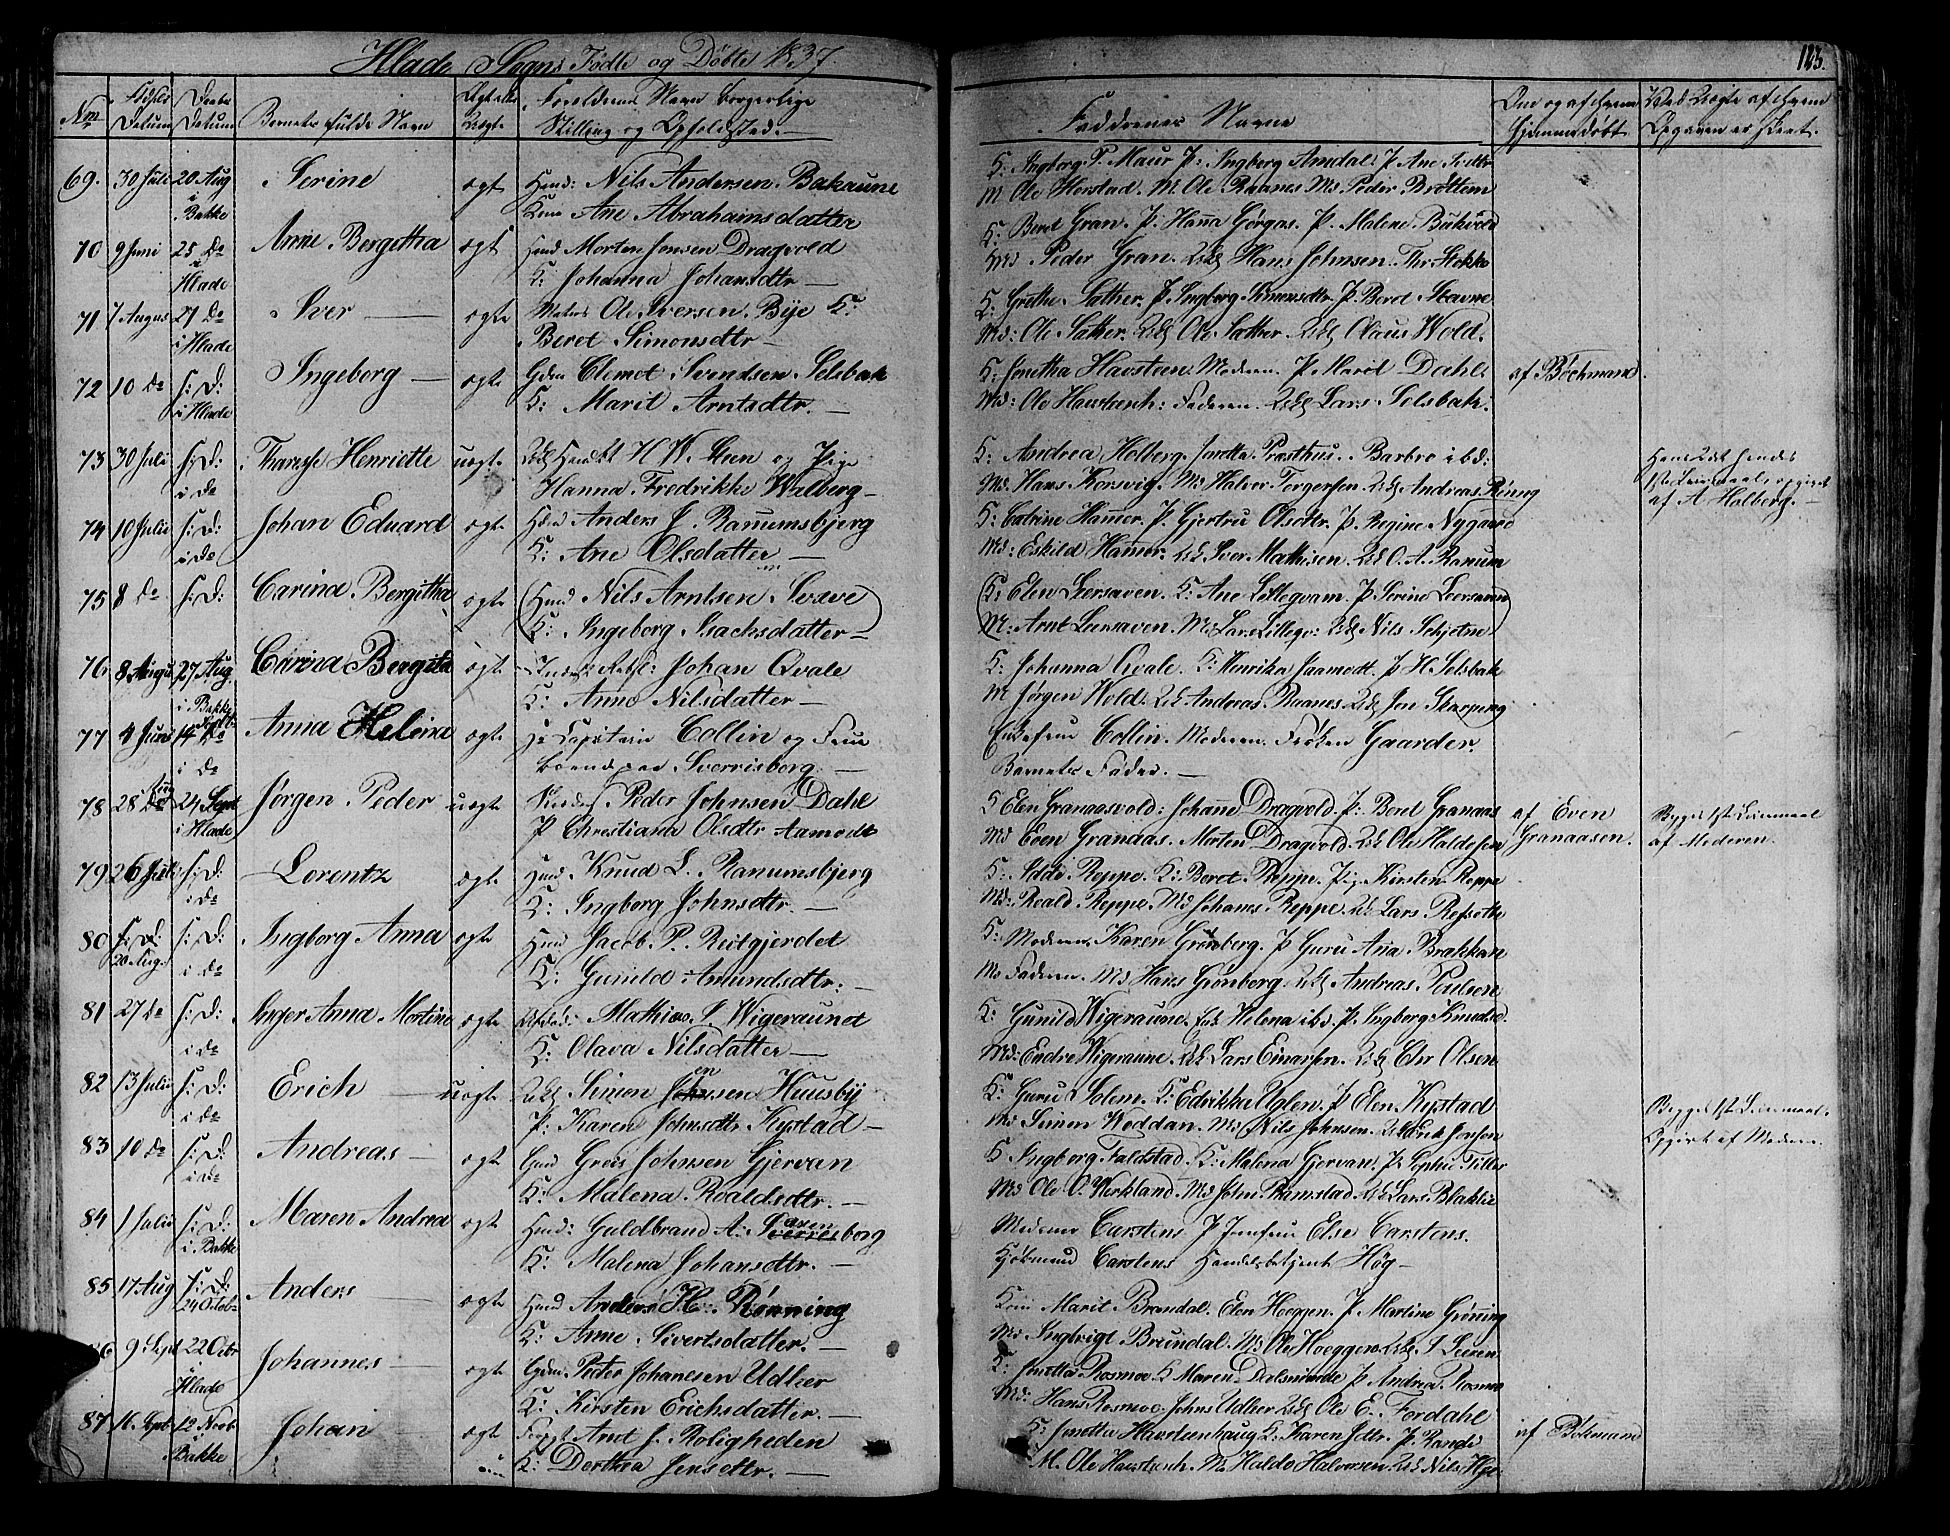 Hlade Sogns Fødte og Døbte 1837.
123.
Nm
Fødsels Datum
Daabs Datum
Barnets fulde Navn
Ægte eller Uægte
Forældrenes Navn borgerlige Stilling og Opholdsted.
Faddrenes Navne
Om og af hvem hjemmedøbt
Ved Uægte af hvem Opgaven er skeet.
69. 30 Juli 20 Aug i Bakke Serine ægt Huusm: Nils Andersen Bakaune
Kone Ane Abrahamsdatter
K: Ingborg P. Maur P: Ingborg Amdal P Ane
M Ole Herstad. M. Ole Raanes Md Peder Brøttem
70 9 Juni 25 Do i Hlade Anne Bergettha ægt Huusm Morten Jonsen Dragvold
K: Johanna Johansdtr —
K: Beret Gran. P. Hanna Gørgas. P. Malene Bukvold
Md Peder Gran. Hans Johnsen. Thr: Stokke
71 7 August 27 Do i Hlade Iver — ægte Ole Iversen Bye K:
Beret Simonsdtr —
K: Grethe Sather. P. Ingborg Simonsdtr. P: Beret Stavne
Md: Ole Sather. Ole Sather. Olaus Wold.
72 10 Do s: D: i Hlade Ingeborg — ægte Gdm Clemet Svendsen Selsbak
K: Marit Arntsdtr. —
K: Jonetha Havsteen Moderen. P. Marit Dahl.
Md: Ole Haustenh: Faderen. Lars Selsbak.
af Bøckmand.
73 30 Juli s: D: i do Tharesse Henriette uægte H W Steen og Pige
Hanna Fredrikke Walberg —
K: Andrea Holberg. Jonetta Præsthus. Barbro ibd:
Md. Hans Korsvig. Md Halvor Torgersen. Andreas Rønng
Hans 2det hendes
1ste Leiermaal, opgivet
af A Halberg. —
74 10 Juli s: D: i do Johan Eduard ægte Huusm Anders J. Ranumsbjerg
K: Ane Olsdatter —
K: Catrine Hammer. P. Gjertru Olsdtr. P. Regine Nygaard
Md: Eskild Hammer. Iver Mathisen. O. A. Ranum
75 8 Do s: D: Carina Bergitha ægte (Huusm Nils Arntsen Svæve
K: Ingeborg Isachsdatter —
(K: Elen Leersaven. K: Ane Lillegvam. P. Serine Leersaven
M: Arnt Leersaven. Md Lars Lillegv: Nils Schjetne)
76 8 Augu 27 Aug i Bakke Carina Bergita ægte Johan Qvale
K: Anne Nilsdatter —
K: Johanna Qvale. K: Henrika Jaamodt. P H. Selsbak
M Jørgen Wold. Andreas Raanes. Jon Skarpeng
77 4 Juni Do i do Anna Helena ægte Hr Captain Collin og Frue
boende paa Sverrisborg. —
Collin. Moderen. Frøken Gaarder.
Barnets Fader. —
78 28 Aug 24 Sept i Hlade Jørgen Peder uægte Peder Johnsen Dahl
P Christiana Olsdtr Aamodt
K Elen Granaasvold: Johane Dragvold P: Beret Granaas
Md Even Granaas. Morten Dragvold. Ole Haldesen
af Even
Granaasen.
Begges 1ste Leiermaal
af Moderen.
79 26 Juli s: D: i do Lorentz ægte Huusm Knud L. Ranumsbjerg
K: Ingborg Johnsdtr. —
K: Addi Reppe. K: Beret Reppe. Pig. Kirsten Reppe
Md: Roald Reppe. Md Johanes Reppe. Lars Refsethe
80 s: D: 20 Aug. s: D: i do Ingborg Anna ægte Huusm Jacob P. Reitgjerdet
K: Gunild Amundsdtr: —
K: Moderen. Karen Grønberg. P Guru Ana Brakkan
Md Faderen. Md Hans Grønberg. Andreas Poulsen
81 27 Do s: D: i do Inger Anna Martine ægte Mathias J Wigeraunet
K: Olava Nilsdatter —
K: Gunild Wigeraune. Helena ibd. P. Ingborg Knudsd.
Md: Endre Wigeraune. Lars Einarsen. Chr Olsen
82 13 Juli s: D: i do Erich — uægte Simon Jonsen Huusby
P: Karen Johnsdtr Rystad —
K: Guru Solem. K: Edrikke Uglen. P Elen Rystad
Md Simen Woddan. Md Nils Johnsen. Erik Jonsen
Begges 1ste Leiermaal.
Opgivet af Moderen.
83 10 Do s: D: i do Andreas — ægte Gmd Greis Johnsen Gjervan
K: Malena Roaldsdtr. —
K Ingborg Faldstad. K: Malena Gjervan. P. Sophie Tiller
Md Ole O. Werkland. Md John Ramstad. Lars Blaklie
84 1 Juli s: D: i Bakke Maren Andrea ægt Huusm: Guldbrand A: Sverresborg
K: Malena Johansdtr. —
Madame Carstens P Jomfru Else Carstens.
Kjøbmand Carstens Handelsbetjent Høg —
85 17 Aug s: D: 24 Octob Anders — ægte Huusm Anders H. Rønning
K: Anne Sivertsdatter. —
Kone Marit Brandal. Elen Hoeggen. P Martine Grønning
Md Ingbrigt Brundal. Md Ole Hoeggen. I Leeren
86 9 Sept 22 Octbr i Hlade Johannes — ægte Gdm. Peter Johansen Udlier
K: Kirsten Erichsdatter. —
K: Jonetta Rosmoe K Maren Dalmunde P Andrea Rosmo
Md: Hans Rosmoe. Johns Udlier Ole E. Fordahl
87 16. Sept 12 Novb i Bakke Johan ægte Arnt J. Roligheden
K: Dorthea Jensdtr. —
K: Jonetha Havsteenhaug K. Karen Jdtr. P. Randi
M. Ole Haustenh. Md Haldo Halvorsen. Nils Hge:
af Bökmand